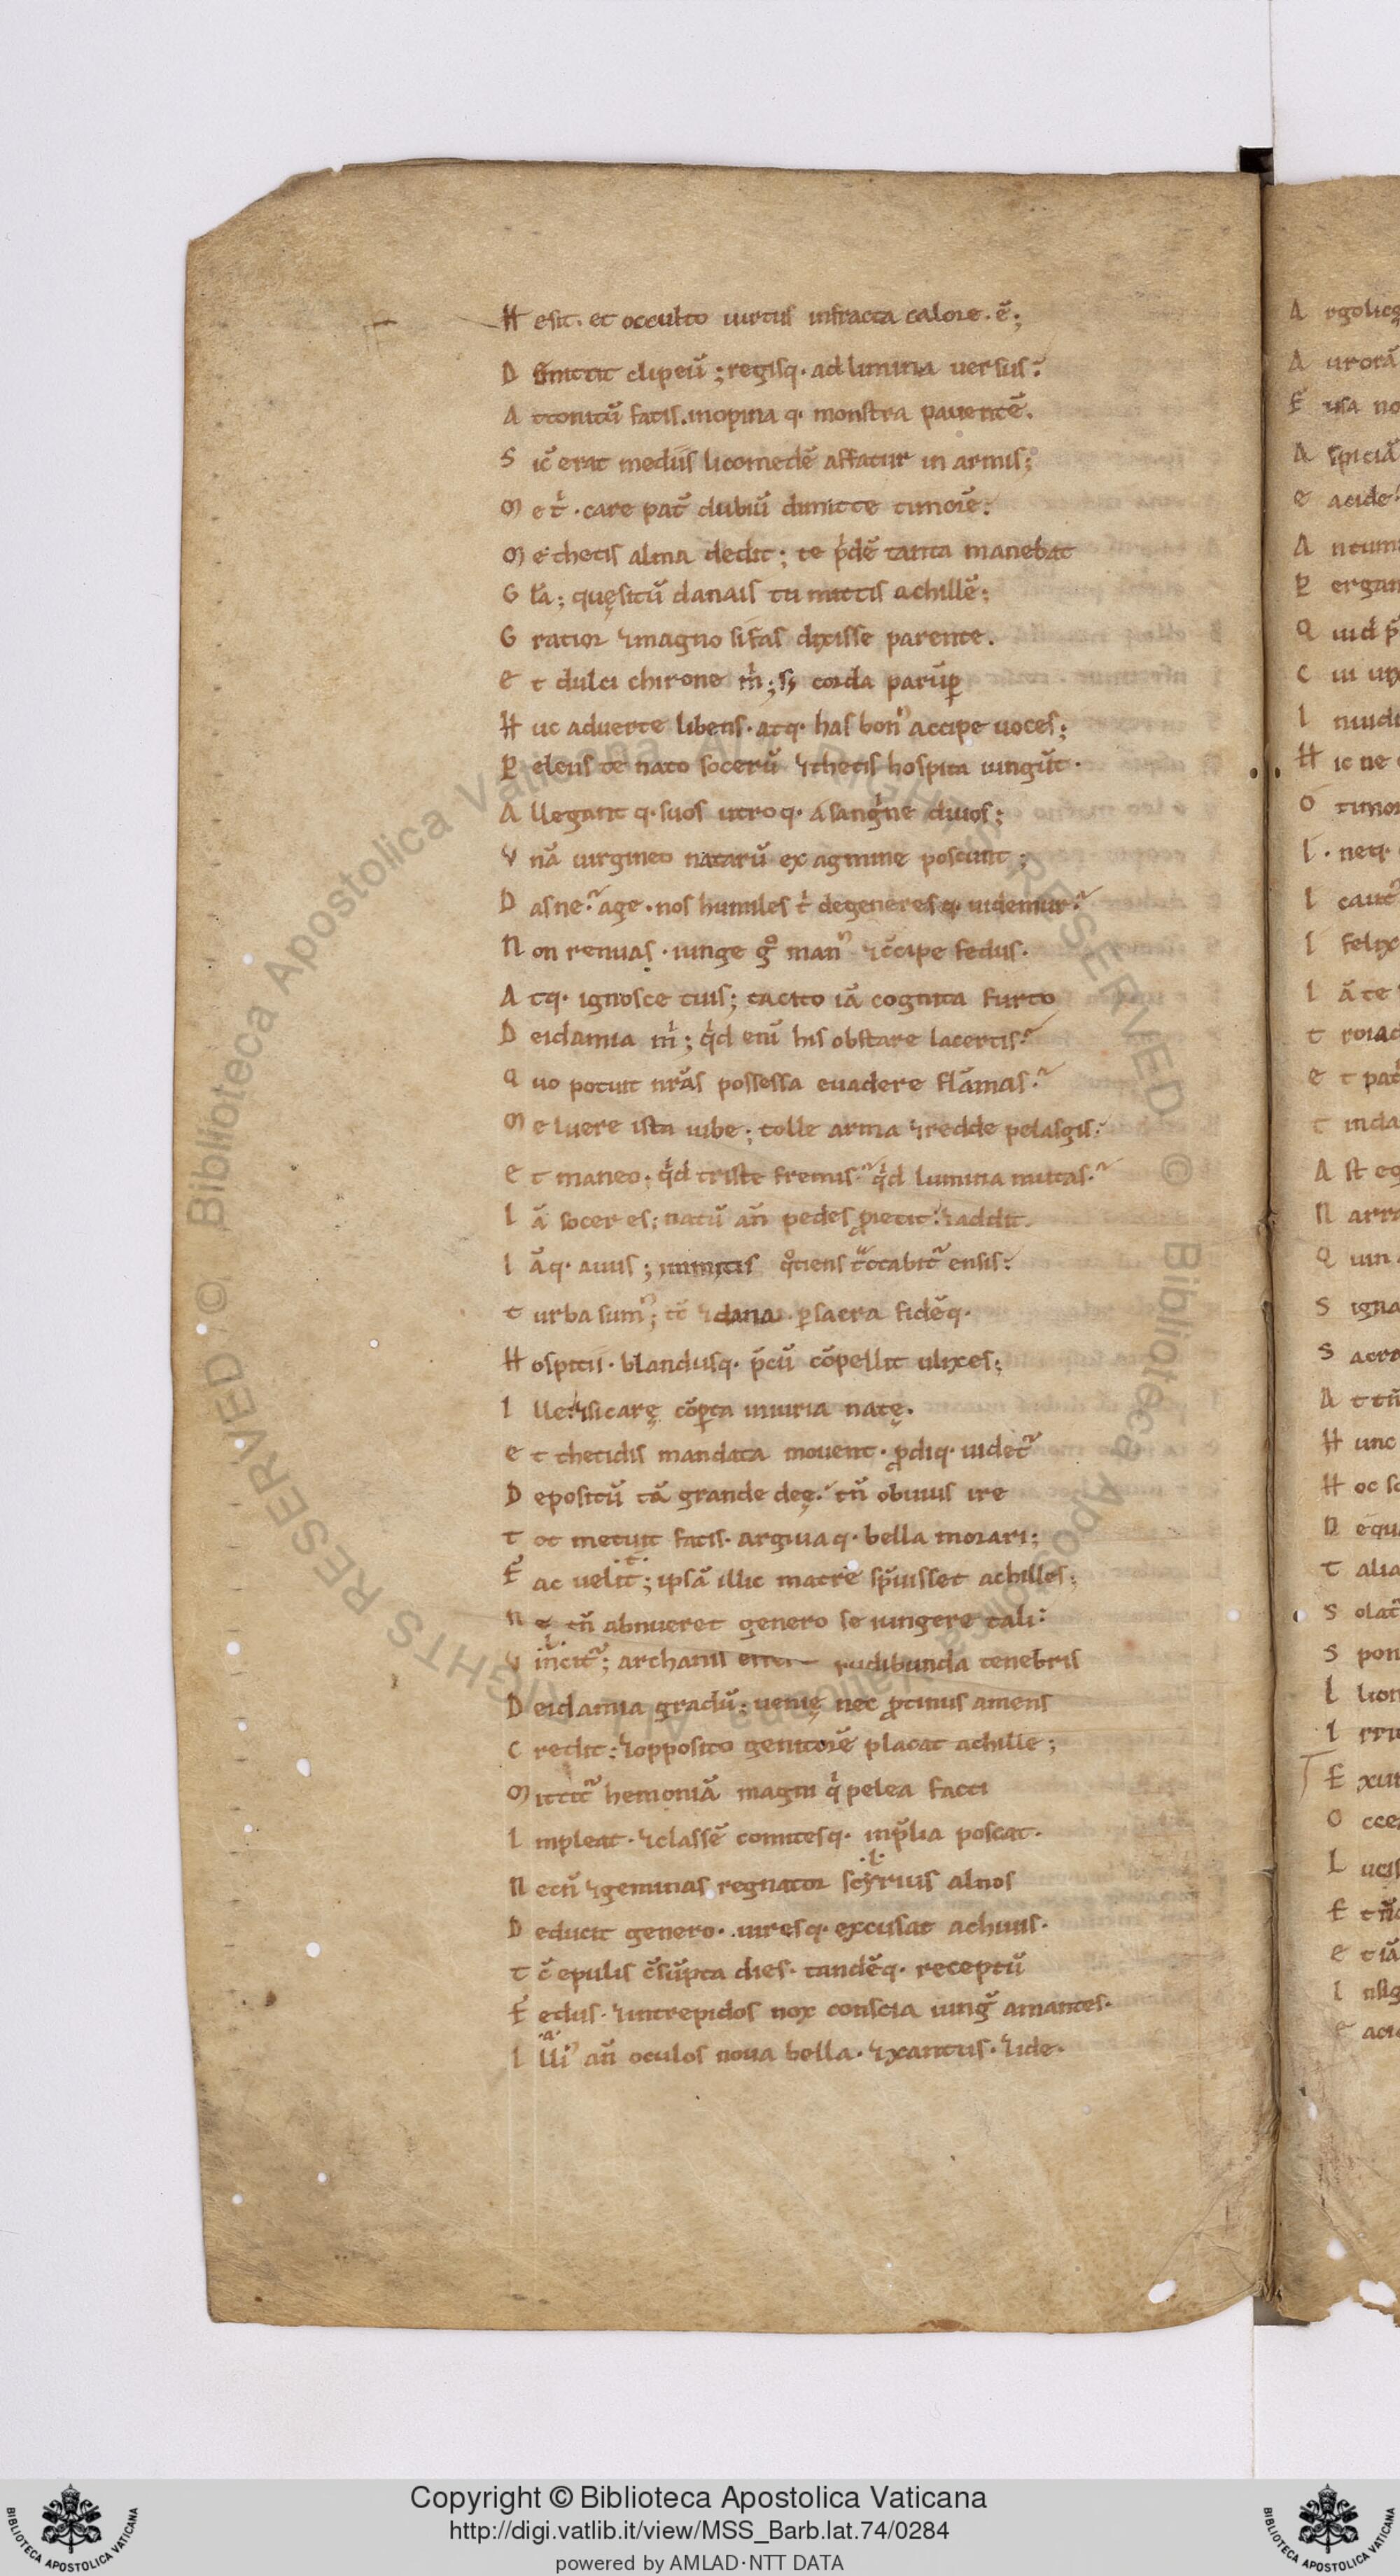 H esit. et occulto uirtus infracta calore. ē;
D imittit clipeū; regisq. ad limina uersus:
A ttonitū factis. inopina q. monstra pauentē.
S ic̄ erat mediis licomedē affatur in armis;
M e t̓. care pat̄ dubiū dimitte timorē:
M e thetis alma dedit; te p̓dē tanta manebat
G l̄a; quęsitū danais tu mittis achillē;
G ratior ⁊ magno si fas dixisse parente.
E t dulci chirone m̓; sꝫ corda parūp̲
H uc aduerte libens. atq. has bonꝰ accipe uoces;
P eleus te nato socerū ⁊ thetis hospita iungūt.
A llegant q. suos utroq. a sang̓ne diuos;
V nā uirgineo natarū ex agmine poscunt;
D asne? age. nos humiles t̓ degeneres q. uidemur?
N on renuas. iunge gͦ manꝰ ⁊ c̄cipe fedus.
A tq. ignosce tuis; tacito iā cognita furto
D eidamia m̓; q̓d enī his obstare lacertis?
Q uo potuit nr̄as possessa euadere flāmas?
M e luere ista iube; tolle arma ⁊ redde pelasgis:
E t maneo. q̓d triste fremis? q̓d lumina mutas?
I ā socer es; natū an̄ pedes ꝓiecit: ⁊ addit.
I āq. auus; inmitis qͦtiens
T urba sumꝰ; tc̄ ⁊ danai. ꝑ sacra fidēq.
H ospitii. blandusq. p̄cū cōpellit ulixes;
I lle: ⁊ si carę cōꝑta iniuria natę.
E t thetidis mandata mouent. ꝓdiq. uidet᷑
D epositū tā grande deę: tn̄ obuius ire
T ot metuit fatis. argiuaq. bella morari;
F ac uelit; ipsā illic matrē sp̄uisset achilles;
N e tn̄ abnueret genero se iungere tali:
V incit᷑; archanis rudibunda tenebris
D eidamia gradū; uenię nec ꝓtinus amens
C redit; ⁊ opposito genitorē placat achille;
M ittit᷑ hemoniā magni q̓ pelea facti
I mpleat. ⁊ classē comitesq. inp̄lia poscat.
N ecn̄ ⁊ geminas regnator scyrius alnos
D educit genero. uiresq. excusat achiuis.
T c̄ epulis c̄sūpta dies. tandēq. receptū
F edus. ⁊ intrepidos nox conscia iunḡ amantes.
I lliꝰ an̄ oculos noua bella. ⁊ xantus. ⁊ ide.
A rgolica
A urorā
F usa no
A spiciā
E acide
A ntum
P ergam
Q uid p̄
C ui
I nuidi
H ic ne
O timor
I. neq.
I caut᷑
I felix
I ā te
T roia
E t pat
T inda
A st eg
N arra
Q uin
S igna
S acra
A t tn̄
H unc
H oc
T alia
S olat᷑
S pon
E xu
O cce
L ucis
E t
E t iā
I nsig
E aci
Copyright © Biblioteca Apostolica Vaticana
http://digi.vatlib.it/view/MSS_Barb.lat.74/0284
powered by AMLAD·NTT DATA
BIBLIOTECA APOSTOLICA VATICANA
BIBLIOTECA APOSTOLICA VATICANA
© Biblioteca Apostolica Vaticana ALL RIGHTS RESERVED © Biblioteca Apostolica Vaticana ALL RIGHTS RESERVED